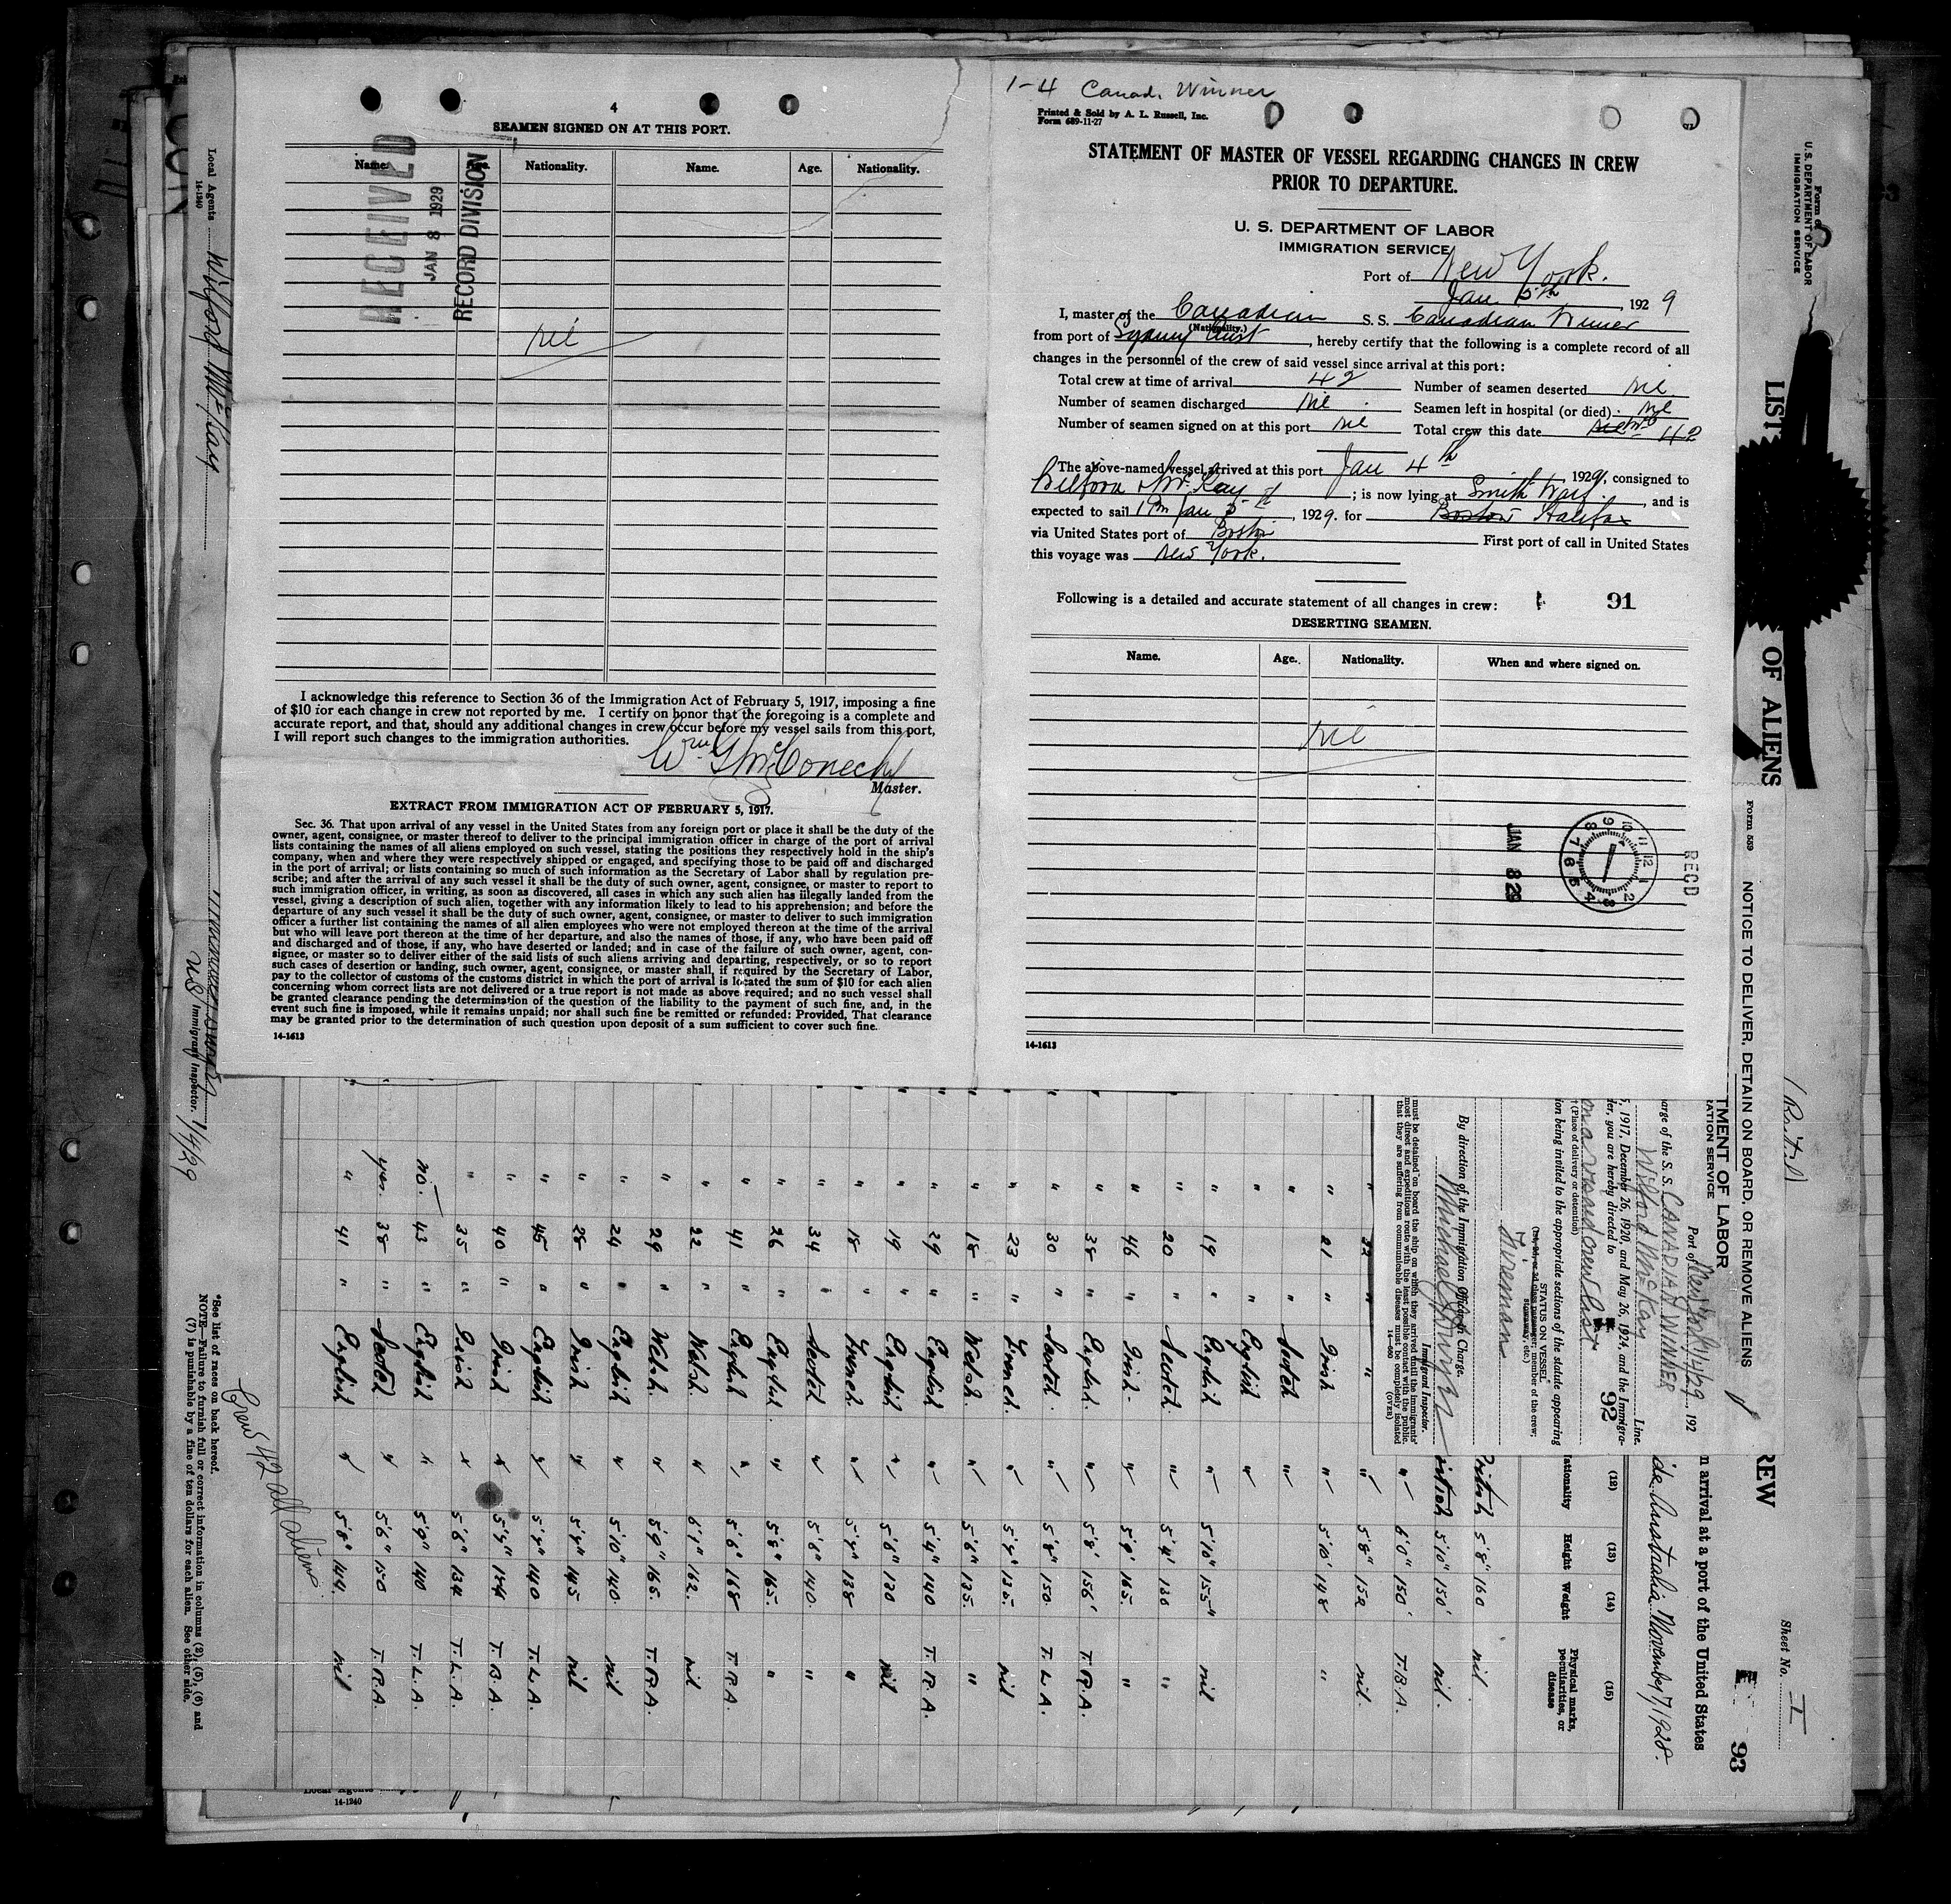 4
SEAMEN SIGNED ON AT THIS PORT.
Name. Age. Nationality. Name. Age. Nationality.
RECEIVED
JAN 8 1929
RECORD DIVISION
Nil
I acknowledge this reference to Section 36 of the Immigration Act of February 5, 1917, imposing a fine
of $10 for each change in crew not reported by me. I certify on honor that the foregoing is a complete and
accurate report, and that, should any additional changes in crew occur before my vessel sails from this port,
I will report such changes to the immigration authorities.
Master.
EXTRACT FROM IMMIGRATION ACT OF FEBRUARY 5, 1917.
Sec. 36. That upon arrival of any vessel in the United States from any foreign port or place it shall be the duty of the
owner, agent, consignee, or master thereof to deliver to the principal immigration officer in charge of the port of arrival
lists containing the names of all aliens employed on such vessel, stating the positions they respectively hold in the ship's
company, when and where they were respectively shipped or engaged, and specifying those to be paid off and discharged
in the port of arrival; or lists containing so much of such information as the Secretary of Labor shall by regulation pre-
scribe; and after the arrival of any such vessel it shall be the duty of such owner, agent, consignee, or master to report to
such immigration officer, in writing, as soon as discovered, all cases in which any such alien has illegally landed from the
vessel, giving a description of such alien, together with any information likely to lead to his apprehension; and before the
departure of any such vessel it shall be the duty of such owner, agent, consignee, or master to deliver to such immigration
officer a further list containing the names of all alien employees who were not employed thereon at the time of the arrival
but who will leave port thereon at the time of her departure, and also the names of those, if any, who have been paid off
and discharged and of those, if any, who have deserted or landed; and in case of the failure of such owner, agent, con-
signee, or master so to deliver either of the said lists of such aliens arriving and departing, respectively, or so to report
such cases of desertion or landing, such owner, agent, consignee, or master shall, if required by the Secretary of Labor,
pay to the collector of customs of the customs district in which the port of arrival is located the sum of $10 for each alien
concerning whom correct lists are not delivered or a true report is not made as above required; and no such vessel shall
be granted clearance pending the determination of the question of the liability to the payment of such fine, and, in the
event such fine is imposed, while it remains unpaid; nor shall such fine be remitted or refunded: Provided, That clearance
may be granted prior to the determination of such question upon deposit of a sum sufficient to cover such fine.
14-1613
1-4 Canad. Winner
Printed & Sold by A. L. Russell, Inc.
Form 689-11-27
STATEMENT OF MASTER OF VESSEL REGARDING CHANGES IN CREW
PRIOR TO DEPARTURE.
U. S. DEPARTMENT OF LABOR
IMMIGRATION SERVICE
Port of New York.
Jan 5th, 1929
I, master of the Canadian S. S. Canadian Winner
(Nationality.)
from port of Sydney Aust, hereby certify that the following is a complete record of all
changes in the personnel of the crew of said vessel since arrival at this port:
Total crew at time of arrival 42 Number of seamen deserted Nil
Number of seamen discharged Nil Seamen left in hospital (or died) Nil
Number of seamen signed on at this port Nil Total crew this date 42
The above-named vessel arrived at this port Jan 4th 1929, consigned to
; is now lying at Smith , and is
expected to sail 1 Pm Jan 5th, 1929. for Boston Halifax
via United States port of Boston First port of call in United States
this voyage was New York.
Following is a detailed and accurate statement of all changes in crew: 91
DESERTING SEAMEN.
Name. Age. Nationality. When and where signed on.
Nil
JAN 8 29
RECD
14-1613
Local Agents Wilford McKay
14-1240
US Immigrant Inspector. 1/4/29
U. S. DEPARTMENT OF LABOR
IMMIGRATION SERVICE
LIST
OF ALIENS
Form 559
NOTICE TO DELIVER, DETAIN ON BOARD, OR REMOVE ALIENS
TMENT OF LABOR
RATION SERVICE
Port of New York 1/4/29, 192
arge of the S. S. CANADIAN WINNER
Wilford McKay Line.
5, 1917, December 26, 1920, and May 26, 1924, and the Immigra-
der, you are hereby directed to
on a visaed crew list
(Place of delivery or detention)
92
ion being invited to the appropriate sections of the statute appearing
STATUS ON VESSEL
Fireman
By direction of the Immigration Official in Charge.
Immigrant Inspector.
must be detained on board the ship on which they arrived until the immigrants'
most direct and expeditious route with the least possible contact with the public.
that they are suffering from communicable diseases must be completely isolated
(OVER)
REW
n arrival at a port of the United States
Sheet No. I
93
Australia November 7/1928.
(12) (13) (14) (15)
ationality Height Weight Physical marks, peculiarities, or disease
British 5'8" 160 nil.
British 5'10" 150 nil.
" 6'0" 150 T.B.A.
32 " " " 5'8" 152 nil
" 21 " Irish " 5'10" 148 "
" " Scotch "
" " English "
" 19 " English " 5'10" 155 nil
" 20 " Scotch " 5'4" 130 "
" 46 " Irish " 5'9" 165 "
" 38 " English " 5'8" 156 T.R.A.
" 30 " Scotch " 5'8" 150 T.L.A.
" 23 " French " 5'7" 135 nil
" 18 " Welsh " 5'6" 135 "
" 29 " English " 5'4" 140 T.R.A.
" 19 " English " 5'6" 130 nil
" 18 " French " 138 "
" 34 " Scotch " 5'6" 140 "
" 26 " English " 5'8" 165 "
" 41 " English " 5'6" 168 T.R.A.
" 22 " Welsh " 6'1" 162 nil
" 29 " Welsh " 5'9" 165 T.R.A.
" 24 " English " 5'10" 140 nil
" 28 " Irish " 145 nil
" 45 " English " 140 T.L.A.
" 40 " Irish " 5'9" 154 T.B.A.
" 35 " Irish " 5'6" 134 T.L.A.
no. 43 " English " 5'9" 140 T.L.A.
yes. 38 " Scotch " 5'6" 150 T.R.A.
" 41 " English " 5'8" 144 nil
Crew 42 all aliens
*See list of races on back hereof.
NOTE—Failure to furnish full or correct information in columns (2), (5), (6) and
(7) is punishable by a fine of ten dollars for each alien. See other side.
Local Agents
14-1240